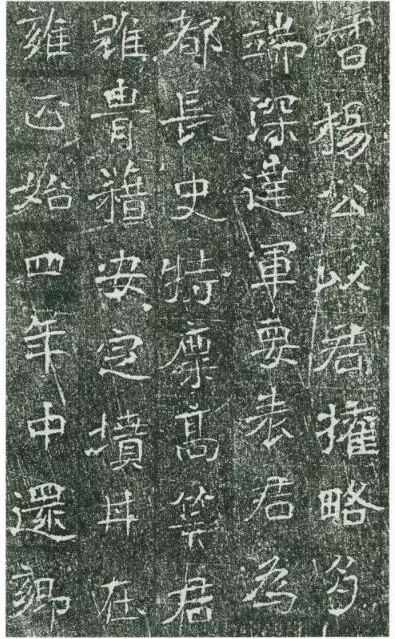 督楊公以君權略多
端深達軍要表君為
都長史特稟高筭君
雖胄藉安定墳井在
雍正始四年中還鄉